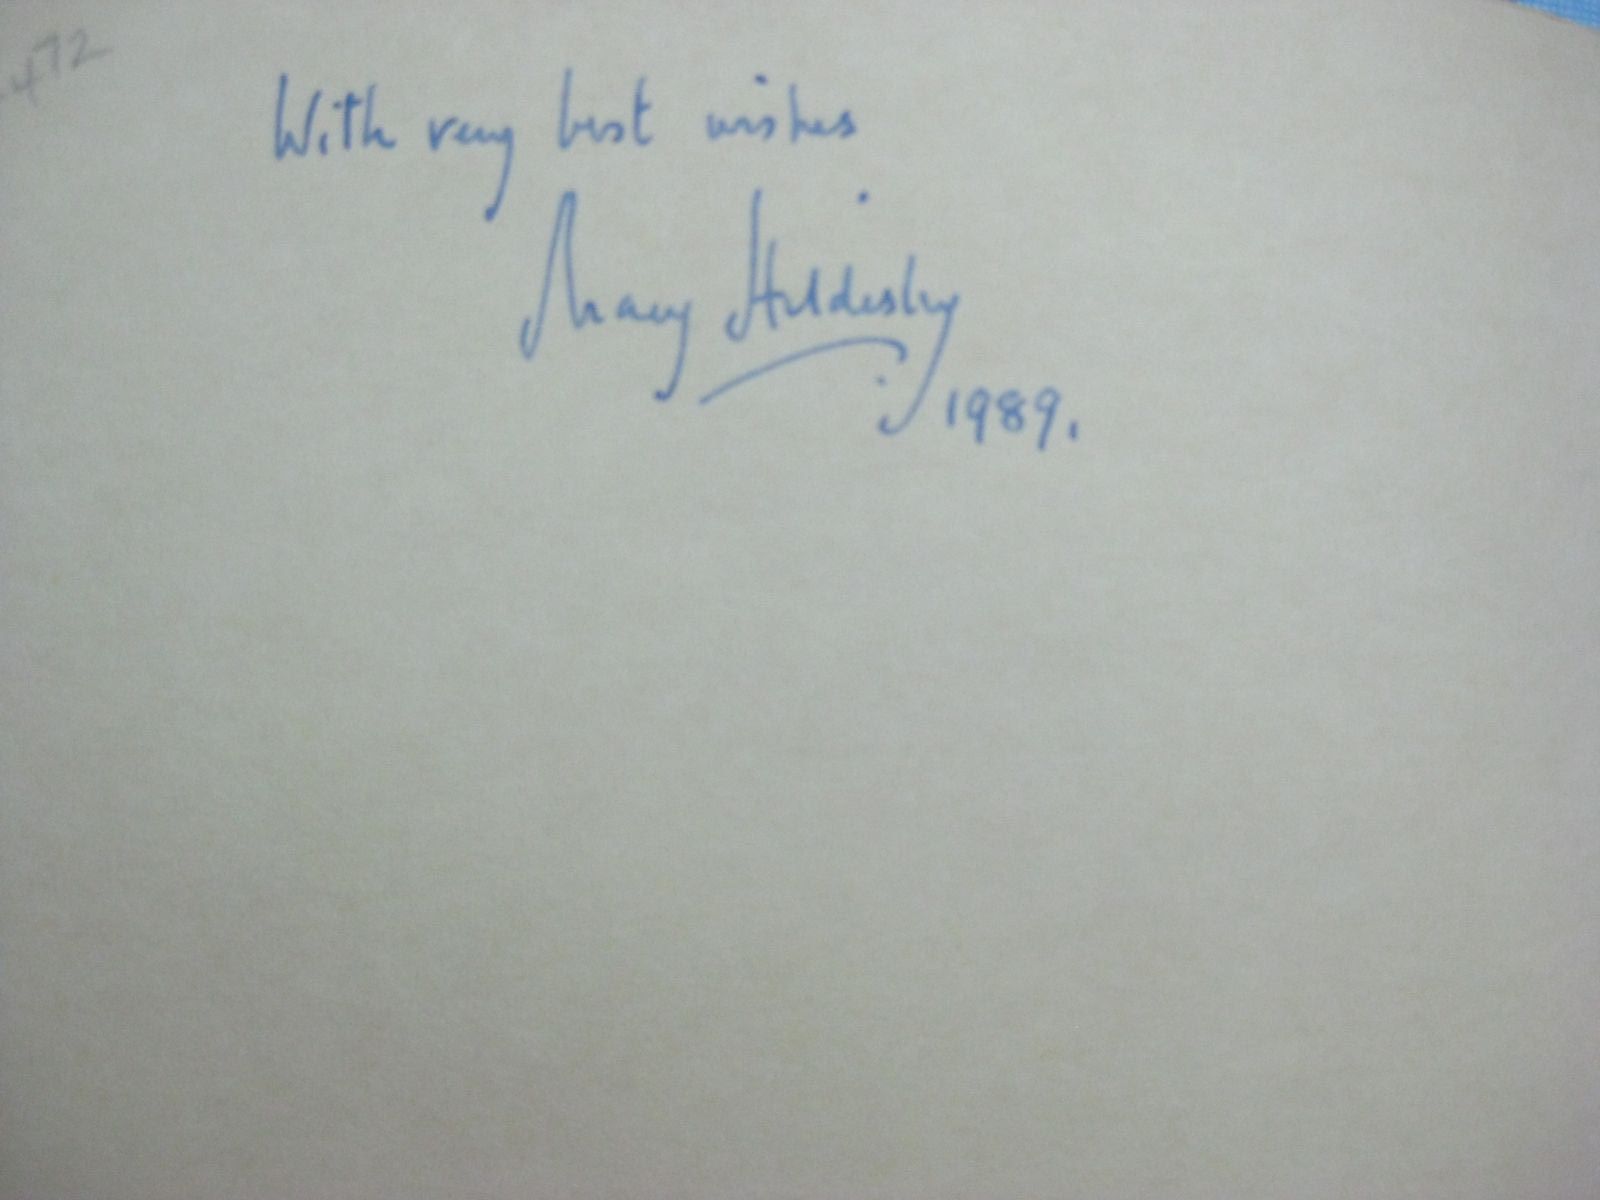 472
With very best wishes
Mary Hildesley
1989.